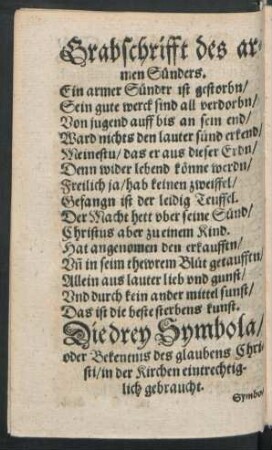 Grabschrifft des ar⸗
men Sünders.
Ein armer Sünder ist gestorbn/
Sein gute werck sind all verdorbn/
Von jugend auff bis an sein end/
Ward nichts den lauter sünd erkend/
Meinestu/ das er aus dieser Erdn/
Denn wider lebend könne werdn/
Freilich ja/ hab keinen zweiffel/
Gefangn ist der leidig Teuffel.
Der Macht hett vber seine Sünd/
Christus aber zu einem Kind.
Hat angenomen den erkaufftn/
Vñ in seim thewrem Blůt getaufftn/
Allein aus lauter lieb vnd gunst/
Vnd durch kein ander mittel sunst/
Das ist die beste sterbens kunst.
Die drey Symbola/
oder Bekentnis des glaubens Chri⸗
sti/ in der Kirchen eintrechtig⸗
lich gebraucht.
Symbo⸗